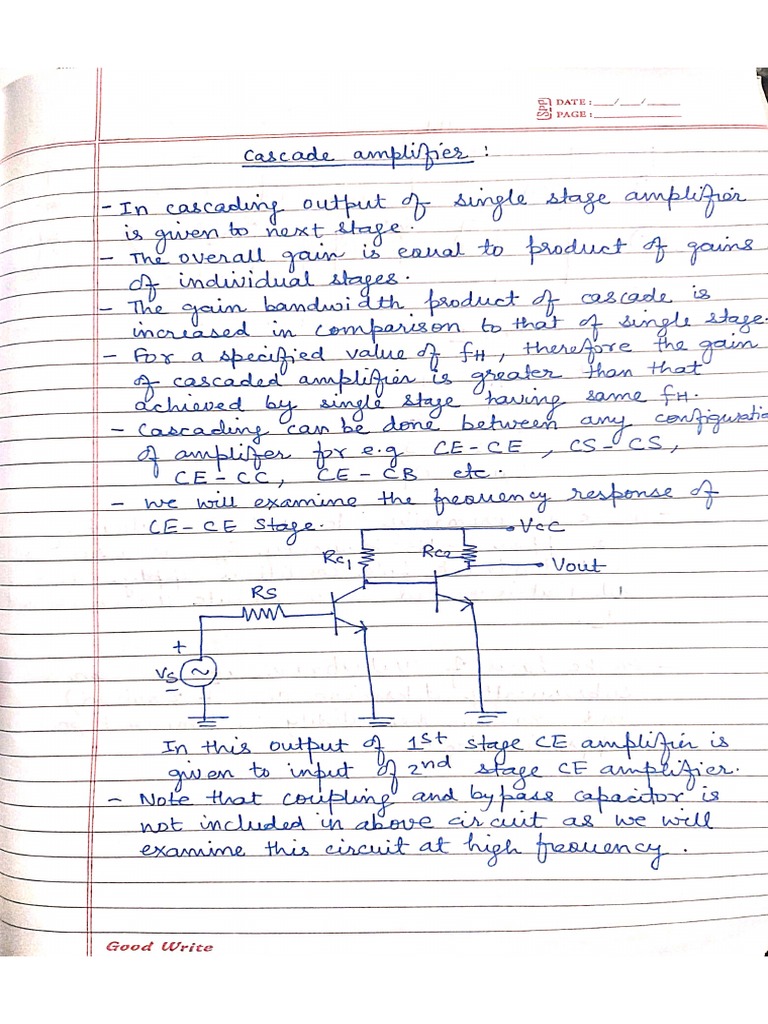 DATE: __/__/__
PAGE:
Cascade amplifier :
- In cascading output of single stage amplifier
is given to next stage.
- The overall gain is equal to product of gains
of individual stages.
- The gain bandwidth product of cascade is
increased in comparison to that of single stage.
- For a specified value of fH, therefore the gain
of cascaded amplifier is greater than that
achieved by single stage having same fH.
- Cascading can be done between any configuratio
of amplifer for e.g CE-CE, CS-CS,
CE-CC, CE-CB etc.
- We will examine the frequency response of
CE-CE stage.
VCC
RC1
RC2
Vout
RS
+
VS
~
-
In this output of 1st stage CE amplifier is
given to input of 2nd stage CE amplifier.
- Note that coupling and bypass capacitor is
not included in above circuit as we will
examine this circuit at high frequency.
Good Write